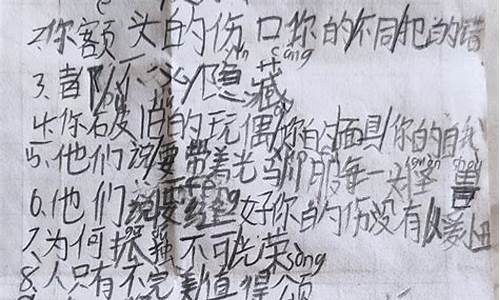 2.你额头的伤口你的不同犯的错
cang
3.都不必隐藏
4.你破旧的玩偶你的面具你的自我
5.他们说要带着光驯服每一头怪兽
6.他们说要缝好你的伤没有人爱
7.为何孤独不可光荣
song
8.人只有不完美值得颂